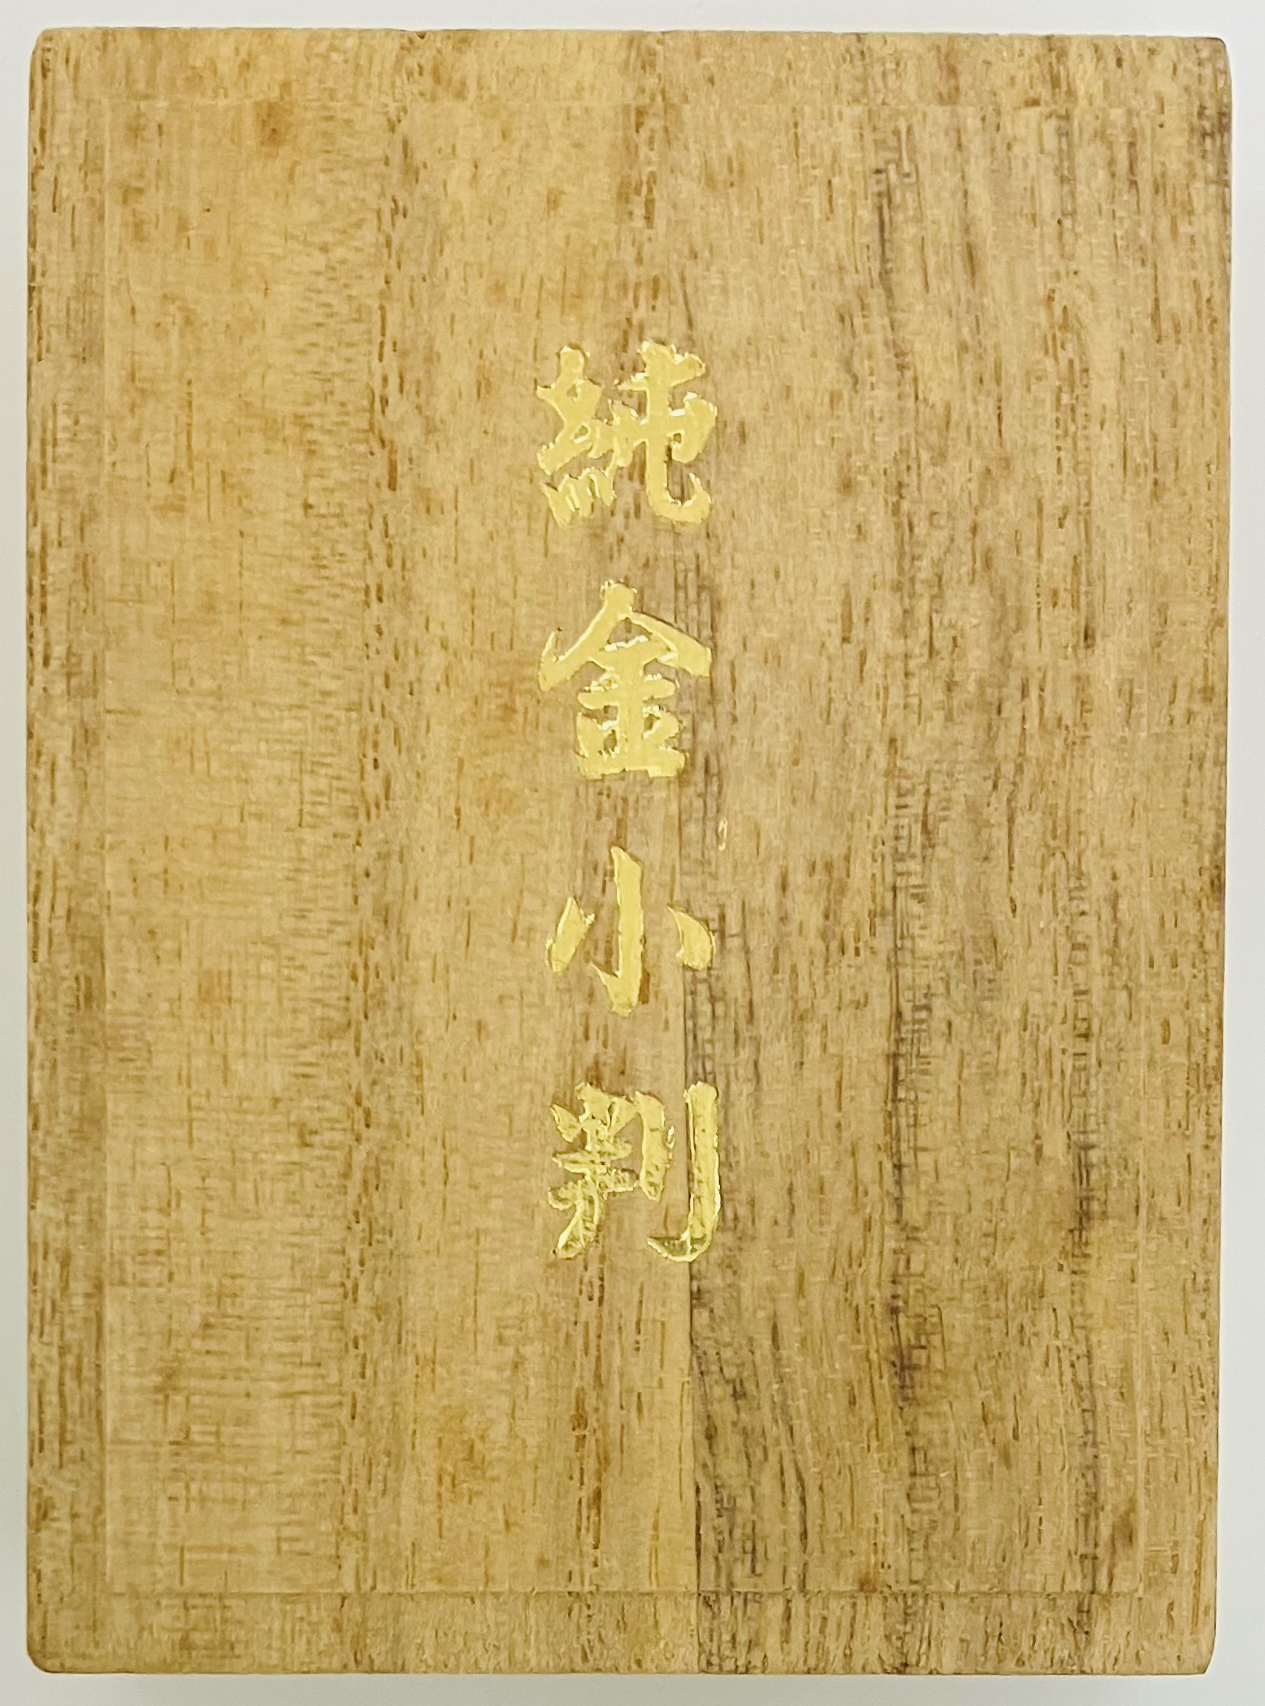 純金小判